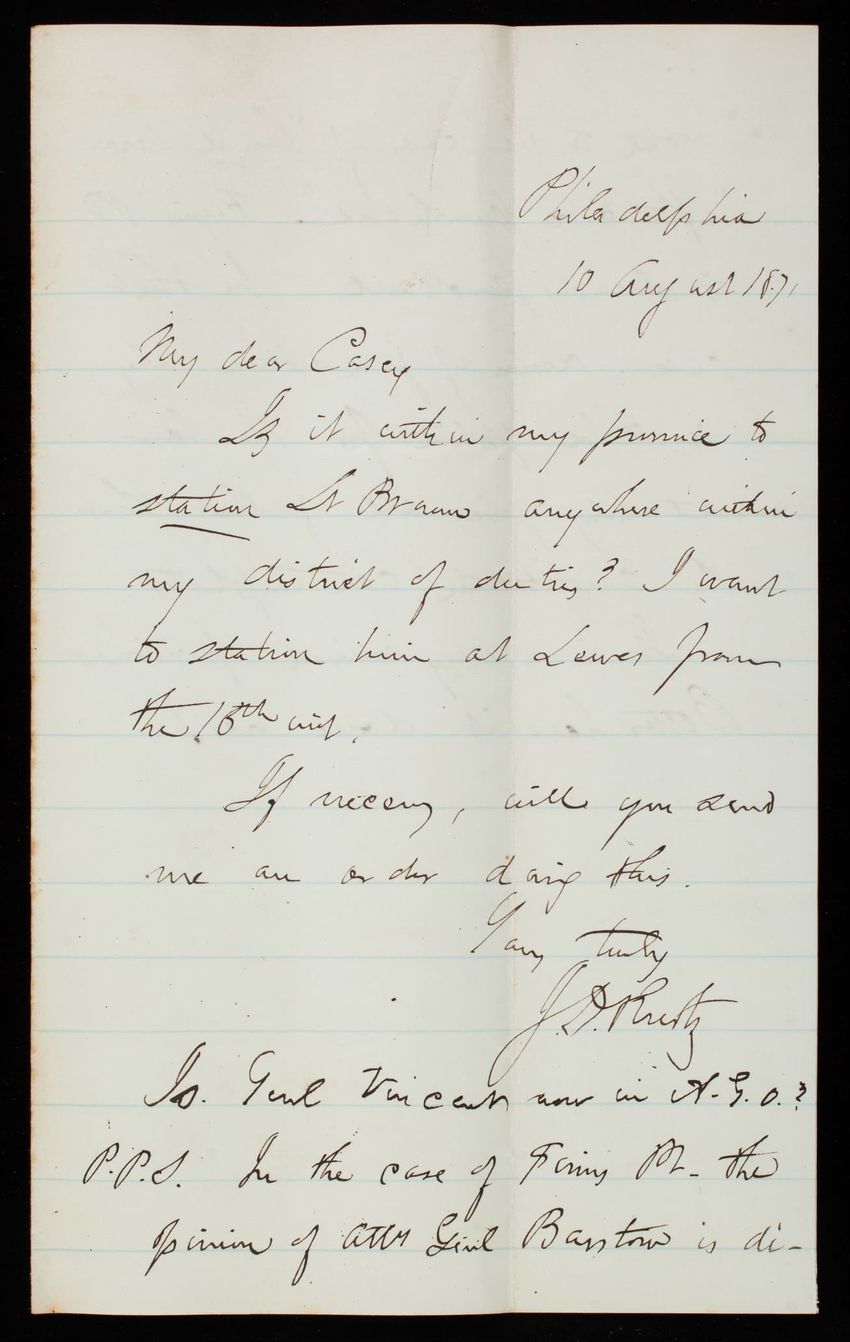 Philadelphia
10 August 1871
My dear Casey
Is it within my province to
station Lt Brown anywhere within
my district of duties? I want
to station him at Lewes from
the 16th inst.
If necessy, will you send
me an order doing this.
Yours truly
J.D. Kurtz
Is. Genl Vincent now in A.G.O.?
P.P.S. In the case of Finns Pt - the
opinion of Atty Genl Barstow is di-